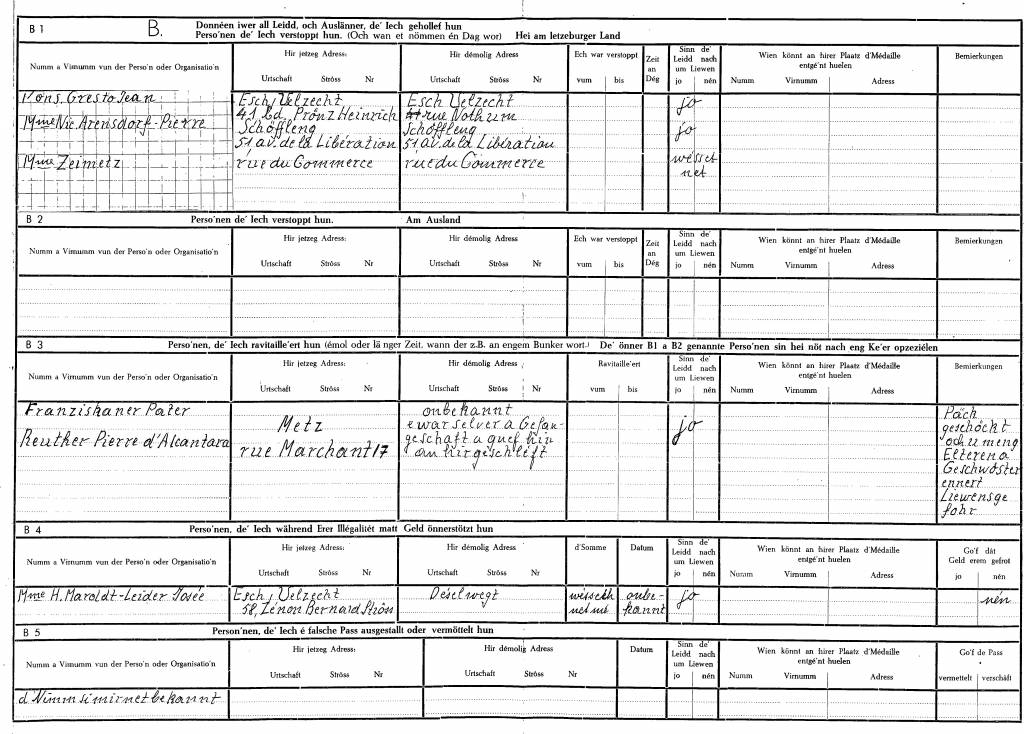 B 1 B. Donnéen iwer all Leidd, och Auslänner, de' Iech gehollef hun
Perso'nen de' Iech verstoppt hun. (Och wan et nömmen én Dag wor) Hei am letzeburger Land
Numm a Virnumm vun der Perso'n oder Organisatio'n
Hir jetzeg Adress:
Urtschaft Ströss Nr
Hir démolig Adress
Urtschaft Ströss Nr
Ech war verstoppt
vum bis
Zeit an Dég
Sinn de' Leidd nach um Liewen
jo nén
Wien könnt an hirer Plaatz d'Médaille entgé'nt huelen
Numm Virnumm Adress
Bemierkungen
Pons. Gresto Jean Esch Uelzecht Esch Uelzecht jo
41 bd. Prönz Heinrich rue Nothum
Mme Nic Arensdorf-Pierre Schöffleng Schöffleng jo
51 av. de la Libération 51 av. de la Libération
Mme Zeimetz rue du Commerce rue du Commerce wësset
net
B 2 Perso'nen de' Iech verstoppt hun. Am Ausland
Numm a Virnumm vun der Perso'n oder Organisatio'n
Hir jetzeg Adress:
Urtschaft Ströss Nr
Hir démolig Adress
Urtschaft Ströss Nr
Ech war verstoppt
vum bis
Zeit an Dég
Sinn de' Leidd nach um Liewen
jo nén
Wien könnt an hirer Plaatz d'Médaille entgé'nt huelen
Numm Virnumm Adress
Bemierkungen
B 3 Perso'nen, de' Iech ravitaille'ert hun (émol oder länger Zeit, wann der z.B. an engem Bunker wort.) De' önner B1 a B2 genannte Perso'nen sin hei nöt nach eng Ke'er opzeziélen
Numm a Virnumm vun der Perso'n oder Organisatio'n
Hir jetzeg Adress:
Urtschaft Ströss Nr
Hir démolig Adress
Urtschaft Ströss Nr
Ravitaille'ert
vum bis
Sinn de' Leidd nach um Liewen
jo nén
Wien könnt an hirer Plaatz d'Médaille entgé'nt huelen
Numm Virnumm Adress
Bemierkungen
Franziskaner Pater
Reuther Pierre d'Alcantara
Metz
rue Marchant 17
onbekannt
e war selver a Gefan-
geschaft a guef hin
an hir geschleft
jo
Päch
geschöckt
och u meng
Elteren a
Geschwöster
ennert
Liewensge
fohr
B 4 Perso'nen, de' Iech während Erer Illégalitét matt Geld önnerstötzt hun
Numm a Virnumm vun der Perso'n oder Organisatio'n
Hir jetzeg Adress:
Urtschaft Ströss Nr
Hir démolig Adress
Urtschaft Ströss Nr
d'Somme
Datum
Sinn de' Leidd nach um Liewen
jo nén
Wien könnt an hirer Plaatz d'Médaille entgé'nt huelen
Numm Virnumm Adress
Go'f dát Geld erem gefrot
jo nén
Mme H. Maroldt-Leider Josée Esch Uelzecht Deselwegt onbe- jo nén
58, Zénon Bernard Ströss kannt
B 5 Person'nen, de' Iech é falsche Pass ausgestallt oder vermöttelt hun
Numm a Virnumm vun der Perso'n oder Organisatio'n
Hir jetzeg Adress:
Urtschaft Ströss Nr
Hir démolig Adress
Urtschaft Ströss Nr
Datum
Sinn de' Leidd nach um Liewen
jo nén
Wien könnt an hirer Plaatz d'Médaille entgé'nt huelen
Numm Virnumm Adress
Go'f de Pass
vermettelt verschäft
d'Nimm si mir net bekannt